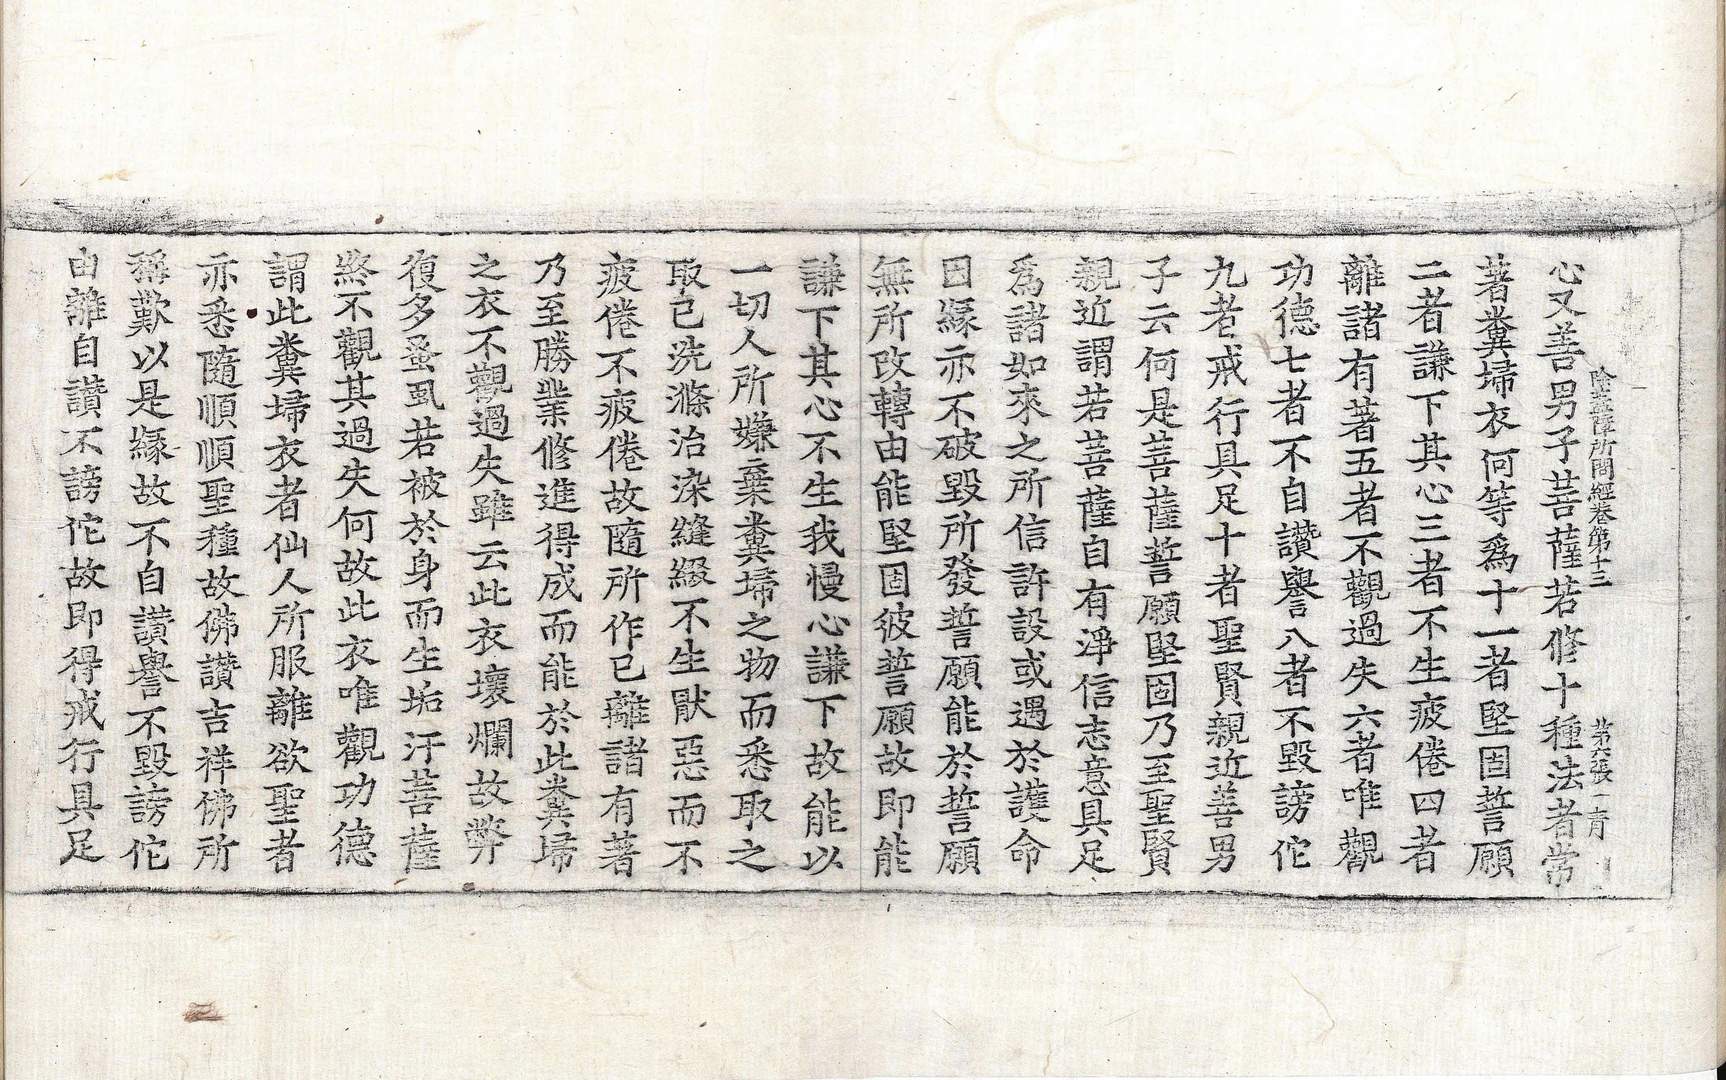 除蓋障所問經卷第十三　第六張　青
心又善男子菩薩若修十種法者常
著糞埽衣何等爲十一者堅固誓願
二者謙下其心三者不生疲倦四者
離諸有著五者不觀過失六者唯觀
功德七者不自讚譽八者不毀謗佗
九者戒行具足十者聖賢親近善男
子云何是菩薩誓願堅固乃至聖賢
親近謂若菩薩自有淨信志意具足
爲諸如來之所信許設或遇於護命
因緣亦不破毀所發誓願能於誓願
無所改轉由能堅固彼誓願故即能
謙下其心不生我慢心謙下故能以
一切人所嫌棄糞埽之物而悉取之
取已洗滌治染縫綴不生猒惡而不
疲倦不疲倦故隨所作已離諸有著
乃至勝業修進得成而能於此糞埽
之衣不觀過失雖云此衣壞爛故弊
復多蚤虱若被於身而生垢汙菩薩
終不觀其過失何故此衣唯觀功德
謂此糞埽衣者仙人所服離欲聖者
亦悉隨順順聖種故佛讚吉祥佛所
稱歎以是緣故不自讚譽不毀謗佗
由離自讚不謗佗故即得戒行具足